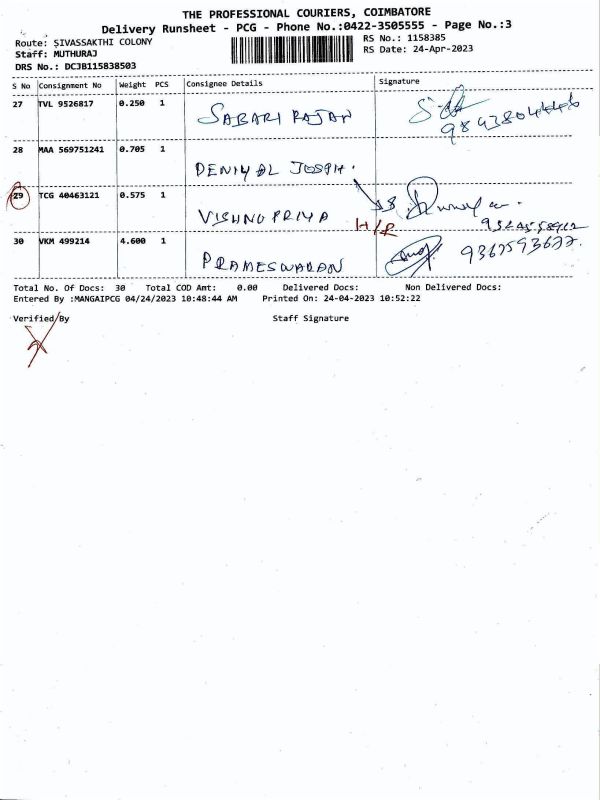 THE PROFESSIONAL COURIERS, COIMBATORE
Delivery Runsheet - PCG - Phone No.:0422-3505555 - Page No.:3
Route: SIVASSAKTHI COLONY RS No.: 1158385
Staff: MUTHURAJ RS Date: 24-Apr-2023
DRS No.: DCJB115838503
S No Consignment No Weight PCS Consignee Details Signature
27 TVL 9526817 0.250 1 SABARI RAJAN
28 MAA 569751241 0.705 1 DENIYAL JOSPH.
29 TCG 40463121 0.575 1 VISHNUPRIYA H/R
30 VKM 499214 4.600 1 PRAMESWARAN 9367593677.
Total No. Of Docs: 30 Total COD Amt: 0.00 Delivered Docs: Non Delivered Docs:
Entered By :MANGAIPCG 04/24/2023 10:48:44 AM Printed On: 24-04-2023 10:52:22
Verified By Staff Signature